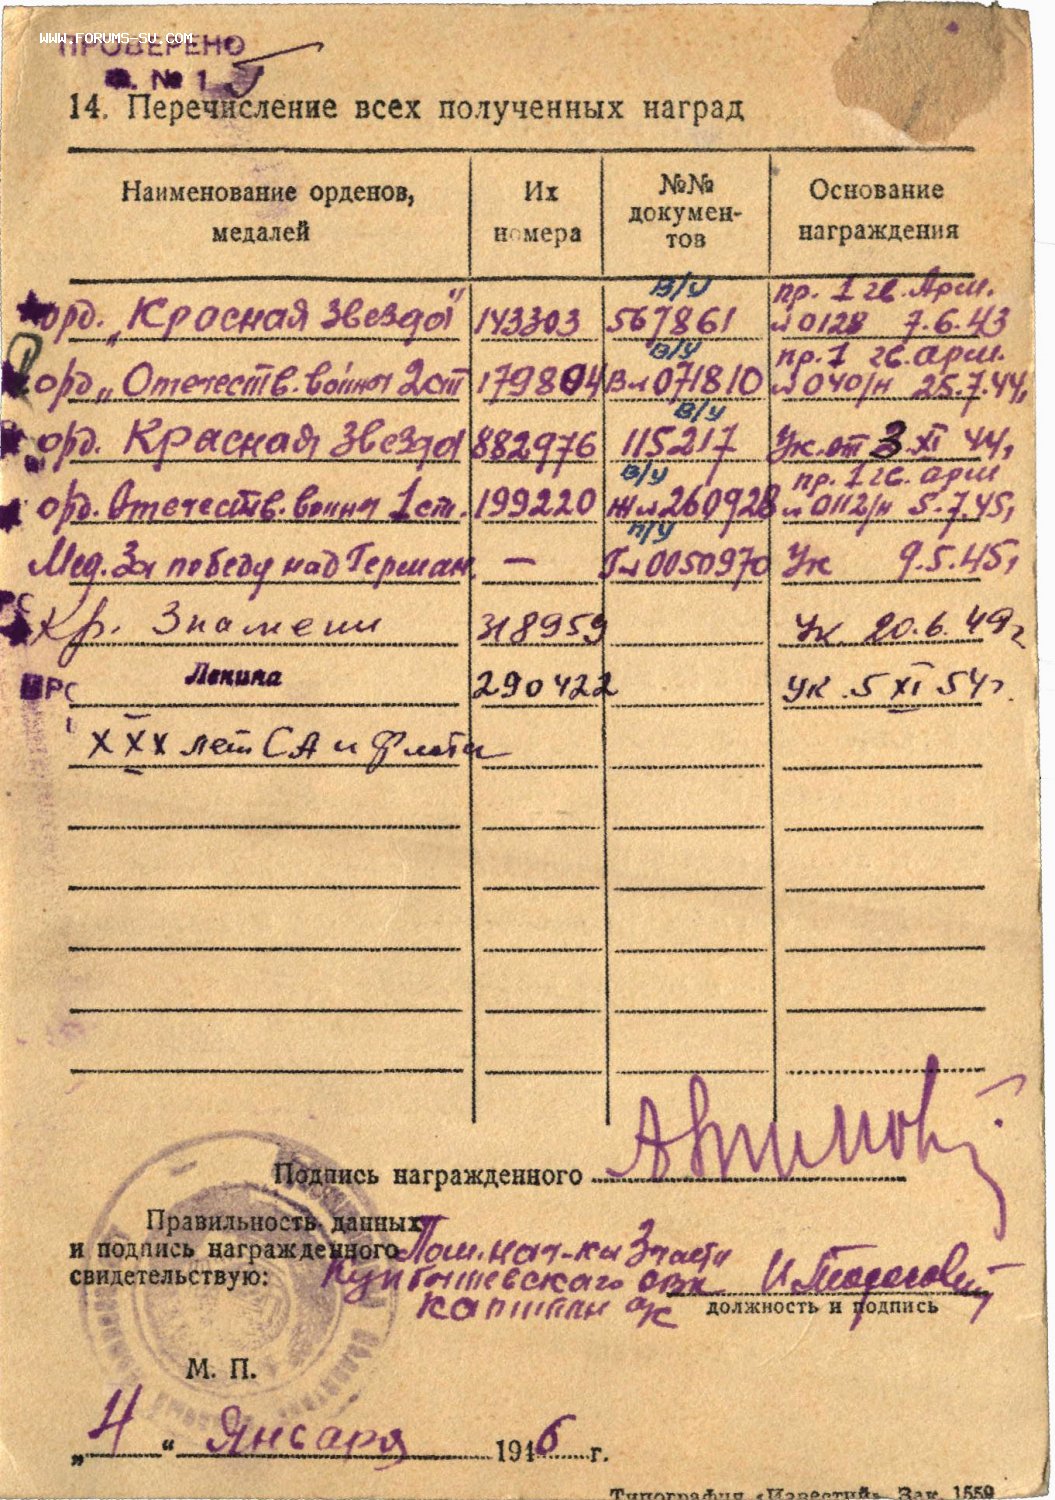 WWW.FORUMS-SU.COM
ПРОВЕРЕНО
№ 1
14. Перечисление всех полученных наград
Наименование орденов, медалей
Их номера
№№ докумен-тов
Основание награждения
в/у
пр. 1 гв. Арм.
орд. „Красная Звезда" 143303 567861 №0128 7.6.43
в/у
пр. 1 гв. арм.
орд „Отечеств. войны 2 ст 179804 В№071810 №040/н 25.7.44,
в/у
орд. Красная Звезда 882976 115217 Ук. от 3.XI 44,
в/у
пр. 1 гв. арм
орд. Отечеств. войны 1 ст. 199220 Ж№260928 №0112/н 5.7.45,
п/у
Мед. За победу над Герман. — Г№0050970 Ук 9.5.45,
Кр. Знамени 318959 Ук 20.6.49г
Ленина 290422 Ук. 5 XI 54г.
XXX лет СА и флота
Подпись награжденного
Правильность данных
и подпись награжденного Пом. нач-ка 3 части
свидетельствую: Куйбышевского
капитан а/с
должность и подпись
М. П.
„4" Января 1946 г.
Типография «Известий». Зак. 1559